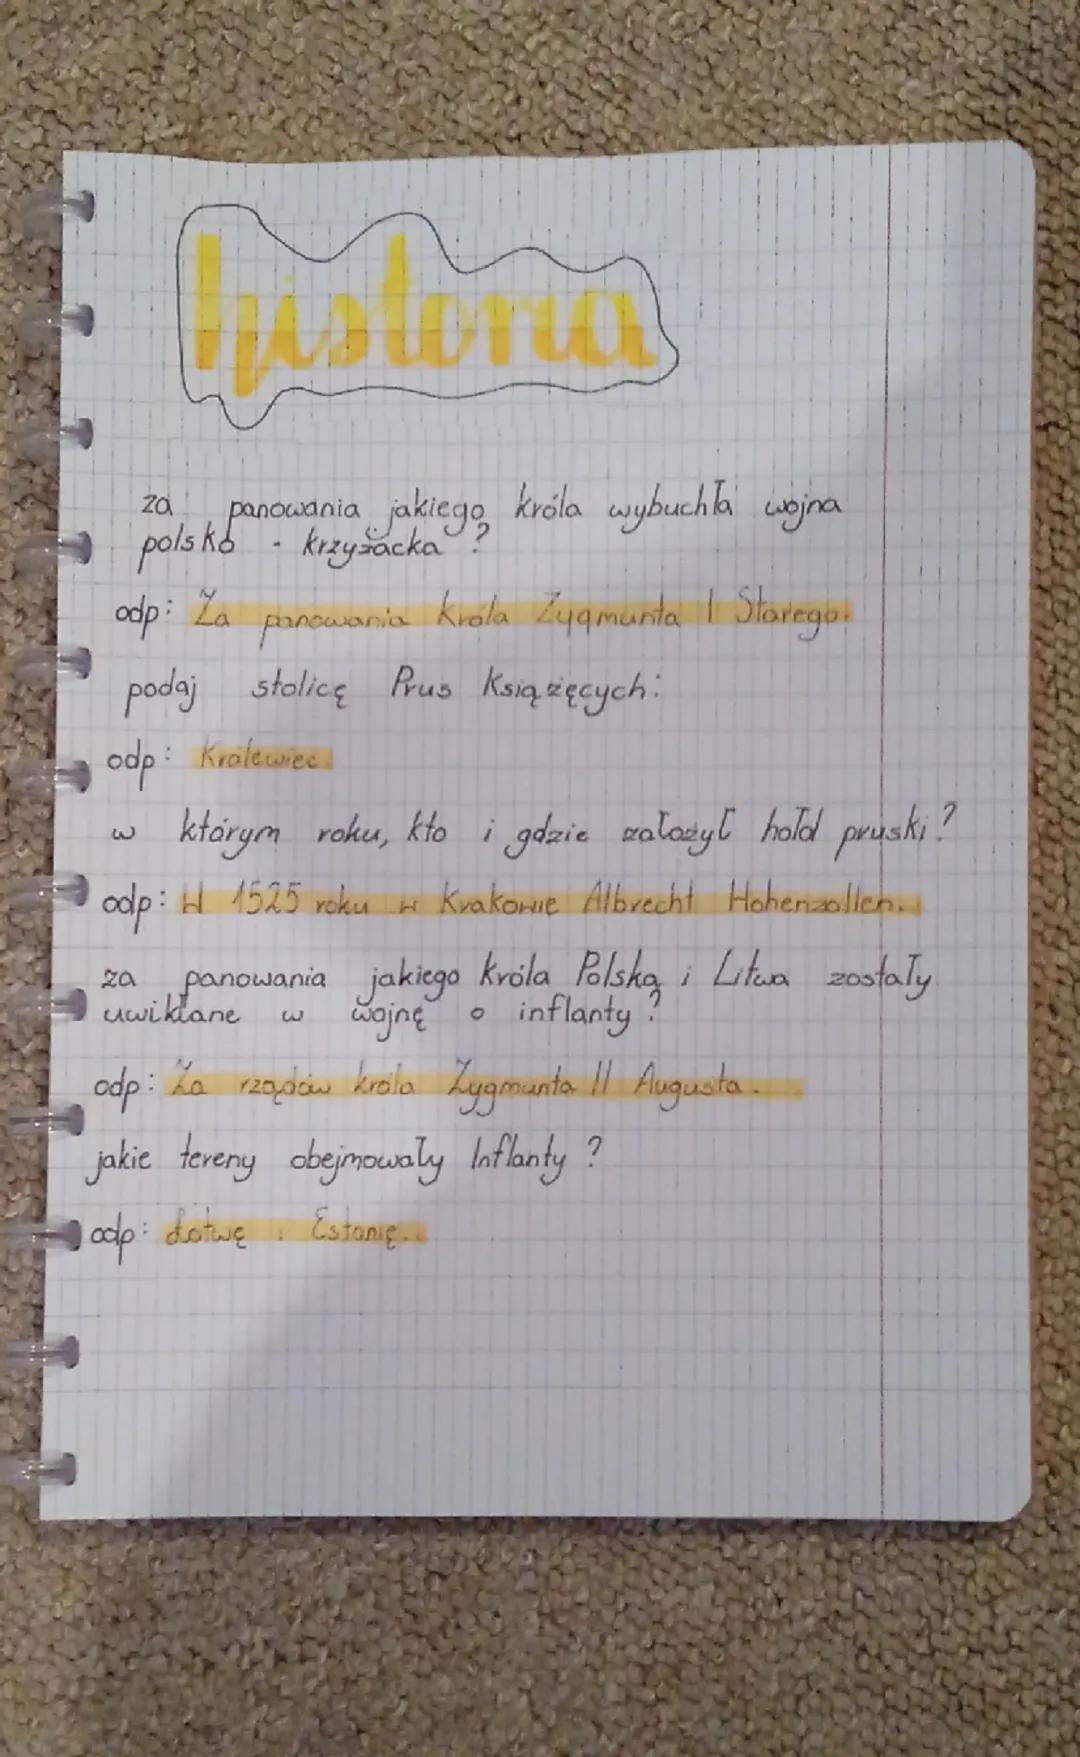 historia
za panowania jakiego króla wybuchła wojna
polsko - krzyżacka ?
odp: Za panowania króla Zygmunta I Starego.
podaj stolicę Prus Książęcych:
odp: Królewiec.
w którym roku, kto i gdzie założył hołd pruski?
odp: W 1525 roku w Krakowie Albrecht Hohenzollen.
za panowania jakiego króla Polska i Litwa zostały
uwikłane w wojnę o inflanty?
odp: Za rządów króla Zygmunta II Augusta.
jakie tereny obejmowały Inflanty ?
odp: Łotwę i Estonię.